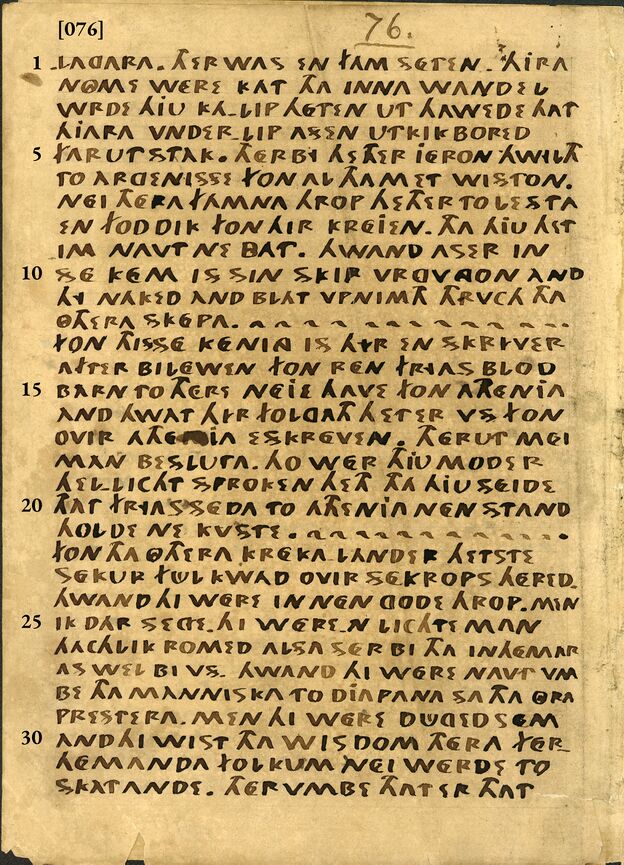 [076]
76.
1 LAGARA. THER WAS EN FAM SETEN. HIRA
NOME WERE KAT THA INNA WANDEL
WRDE HIU KA-LIP HETEN UT HAWEDE HAT
HIARA VNDER-LIP AS EN UTKIKBORED
5 FARUTSTAK. THERBI HETHER IERON HWILA
TO ARDENISSE FON AL THAM ET WISTON.
NEI THERA FAMNA HROP HETHER TO LESTA
EN FODDIK FON HIR KREIEN. THA HIU HET
IM NAVT NE BAT. HWAND AS ER IN
10 SE KEM IS SIN SKIP VRGVNGON AND
HI NAKED AND BLAT VPNIMTH THRVCH THA
OTHERA SKEPA.
FON THISSE KENING IS HYR EN SKRIVER
AFTER BILEWEN FON REN FRYAS BLOD
15 BARN TO THERE NEIE HAVE FON ATHENIA
AND HWAT HYR FOLGATH HET ER VS FON
OVIR ATHENIA ESKREVEN. THERUT MEI
MAN BESLUTA. HO WER THIU MODER
HEL-LICHT SPROKEN HETH THA HIU SEIDE
20 THAT FRYAS SEDA TO ATHENIA NEN STAND
HOLDE NE KVSTE.
FON THA OTHERA KREKALANDER HETSTE
SEKUR FÜL KWAD OVIR SEKROPS HERED.
HWAND HI WERE IN NEN GODE HROP. MEN
25 IK DAR SEGE. HI WERE-N LICHTE MAN
HACHLIK ROMED ALSA SER BI THA INHEMAR
AS WEL BI VS. HWAND HI WERE NAVT VM
BE THA MANNISKA TO DIAPANA SA THA ORA
PRESTERA. MEN HI WERE DUGEDSEM
30 AND HI WIST THA WISDOM THERA FER-
HEMANDA FOLKUM NEI WERDE TO
SKATANDE. THERUMBE THAT ER THAT